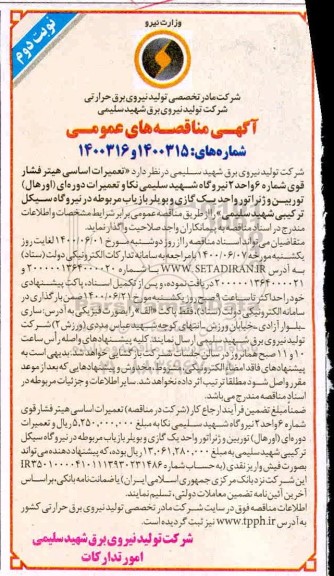 وزارت نیرو
نوبت دوم
شرکت مادر تخصصی تولید نیروی برق حرارتی
شرکت تولید نیروی برق شهید سلیمی
آگهی مناقصه‌های عمومی
شماره‌های: ۱۴۰۰۳۱۵ و ۱۴۰۰۳۱۶
شرکت تولید نیروی برق شهید سلیمی در نظر دارد «تعمیرات اساسی هیتر فشار
قوی شماره ۶ واحد ۲ نیروگاه شهید سلیمی نکا و تعمیرات دوره‌ای (اورهال)
توربین و ژنراتور واحد یک گازی و بویلر بازیاب مربوطه در نیروگاه سیکل
ترکیبی شهید سلیمی» را از طریق مناقصه عمومی برابر شرایط مشخصات و اطلاعات
مندرج در اسناد مناقصه به پیمانکاران واجد صلاحیت واگذار نماید.
متقاضیان می‌توانند اسناد مناقصه را از روز دوشنبه مورخ ۱۴۰۰/۰۶/۰۱ لغایت روز
یکشنبه مورخه ۱۴۰۰/۰۶/۰۷ با مراجعه به سامانه تدارکات الکترونیکی دولت (ستاد)
به آدرس WWW.SETADIRAN.IR با شماره ۲۰۰۰۰۰۱۳۶۴۰۰۰۰۲۰ و
۲۰۰۰۰۰۱۳۶۴۰۰۰۰۲۱ دریافت نموده، و پس از تکمیل اسناد، پاکت پیشنهادی
خود را حداکثر تا ساعت روز یکشنبه مورخ ۱۴۰۰/۶/۲۱ ضمن بارگذاری در
سامانه الکترونیکی دولت (ستاد)، فقط پاکت «الف» را بصورت فیزیکی به آدرس: ساری
-بلوار آزادی-خیابان ورزش-انتهای کوچه شهید عباس مددی (ورزش ۲) شرکت
تولید نیروی برق شهید سلیمی ارسال نمایند. کلیه پیشنهادهای واصله رأس ساعت
۱۰ و ۱۱ صبح همانروز در سالن جلسات شرکت بازگشایی خواهد شد. بدیهی است به
پیشنهادهای فاقد امضا، مشروط، مخدوش و پیشنهادهایی که بعد از موعد
مقرر واصل شود مطلقا ترتیب اثر داده نخواهد شد. سایر اطلاعات و جزئیات مربوطه در
اسناد مناقصه مندرج می‌باشد.
ضمنا مبلغ تضمین فرآیند ارجاع کار (شرکت در مناقصه) تعمیرات اساسی هیتر فشار قوی
شماره ۶ واحد ۲ نیروگاه شهید سلیمی نکا به مبلغ ۵,۲۵۰,۰۰۰,۰۰۰ ریال و تعمیرات
دوره‌ای (اورهال) توربین و ژنراتور واحد یک گازی و بویلر بازیاب مربوطه در نیروگاه سیکل
ترکیبی شهید سلیمی به مبلغ ۱۳,۰۶۱,۲۸۰,۰۰۰ ریال بوده، که پیشنهاد دهنده می‌تواند
بصورت فیش واریز نقدی (به حساب شماره
این شرکت نزد بانک مرکزی جمهوری اسلامی ایران) یا ضمانت نامه بانکی، بر اساس
آخرین آئین نامه تضمین معاملات دولتی، تسلیم نمایند.
اطلاعات مناقصه فوق در سایت شرکت مادر تخصصی تولید نیروی برق حرارتی کشور
به آدرس www.tpph.ir نیز ثبت گردیده است.
شرکت تولید نیروی برق شهید سلیمی
امور تدارکات